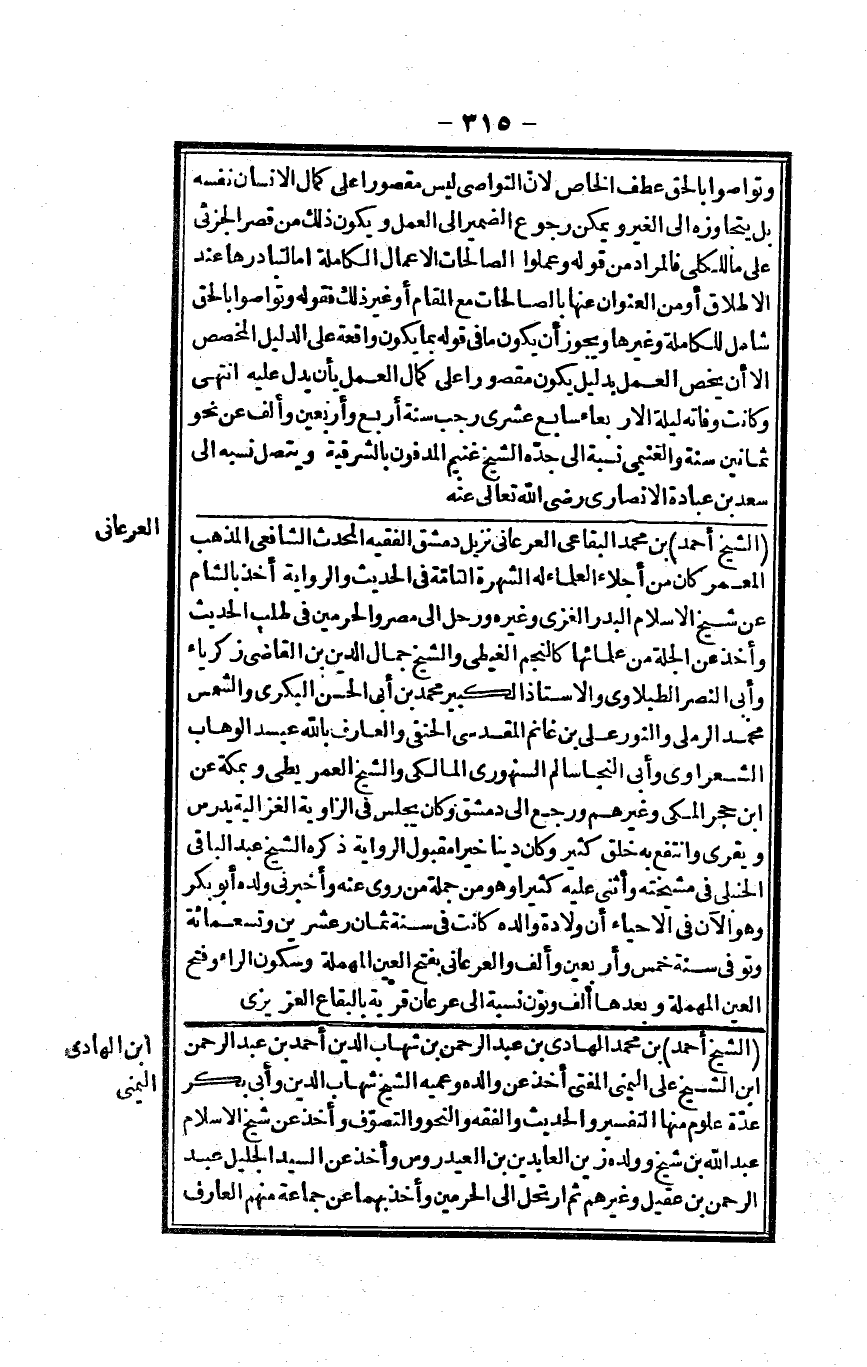 - ٣١٥ -
وتواصوا بالحق عطف الخاص لانّ التواصى ليس مقصورا على كمال الانسان نفسه
بل يتجاوزه الى الغير و يمكن رجوع الضمير الى العمل و يكون ذلك من قصر الجزئى
على ماللكلى فالمراد من قوله وعملوا الصالحات الاعمال الكاملة اما لتبادرها عند
الاطلاق أو من العنوان عنها بالصالحات مع المقام أو غير ذلك فقوله وتواصوا بالحق
شامل للكاملة وغيرها ويجوز أن يكون ما فى قوله بما يكون واقعة على الدليل المخصص
الا أن يخص العمل بدليل يكون مقصورا على كمال العمل بأن يدل عليه انتهى
وكانت وفاته ليلة الاربعاء سابع عشرى رجب سنة أربع وأربعين وألف عن نحو
ثمانين سنة والغنيمى نسبة الى جدّه الشيخ غنيم المدفون بالشرقية ويتصل نسبه الى
سعد بن عبادة الانصارى رضى الله تعالى عنه
العرعانى
(الشيخ أحمد) بن محمد البقاعى العرعانى نزيل دمشق الفقيه المحدث الشافعى المذهب
المعمر كان من أجلاء العلماء له الشهرة التامّة فى الحديث والرواية أخذ بالشام
عن شيخ الاسلام البدر الغزى وغيره ورحل الى مصر والحرمين فى طلب الحديث
وأخذ عن الجلة من علمائها كالنجم الغيطى والشيخ جمال الدين بن القاضى زكرياء
وأبى النصر الطبلاوى والاستاذ الكبير محمد بن أبى الحسن البكرى والشمس
محمد الرملى والنور على بن غانم المقدسى الحنفى والعارف بالله عبد الوهاب
الشعراوى وأبى النجا سالم السنهورى المالكى والشيخ العمريطى و بمكة عن
ابن حجر المكى وغيرهم ورجع الى دمشق وكان يجلس فى الزاوية الغزالية يدرس
ويقرى وانتفع به خلق كثير وكان دينا خيرا مقبول الرواية ذكره الشيخ عبد الباقى
الحنبلى فى مشيخته وأثنى عليه كثيرا وهو من جملة من روى عنه وأخبرنى ولده أبو بكر
وهو الآن فى الاحياء أن ولادة والده كانت فى سنة ثمان وعشرين وتسعمائة
وتوفى سنة خمس وأربعين وألف والعرعانى بفتح العين المهملة وسكون الراء وفتح
العين المهملة و بعدها ألف ونون نسبة الى عرعان قرية بالبقاع العزيزى
ابن الهادى
اليمنى
(الشيخ أحمد) بن محمد الهادى بن عبد الرحمن بن شهاب الدين أحمد بن عبد الرحمن
ابن الشيخ على اليمنى المفتى أخذ عن والده وعميه الشيخ شهاب الدين وأبى بكر
عدّة علوم منها التفسير والحديث والفقه والنحو والتصوّف وأخذ عن شيخ الاسلام
عبد الله بن شيخ وولده زين العابدين بن العيدروس وأخذ عن السيد الجليل عبد
الرحمن بن عقيل وغيرهم ثم ارتحل الى الحرمين وأخذ بهما عن جماعة منهم العارف